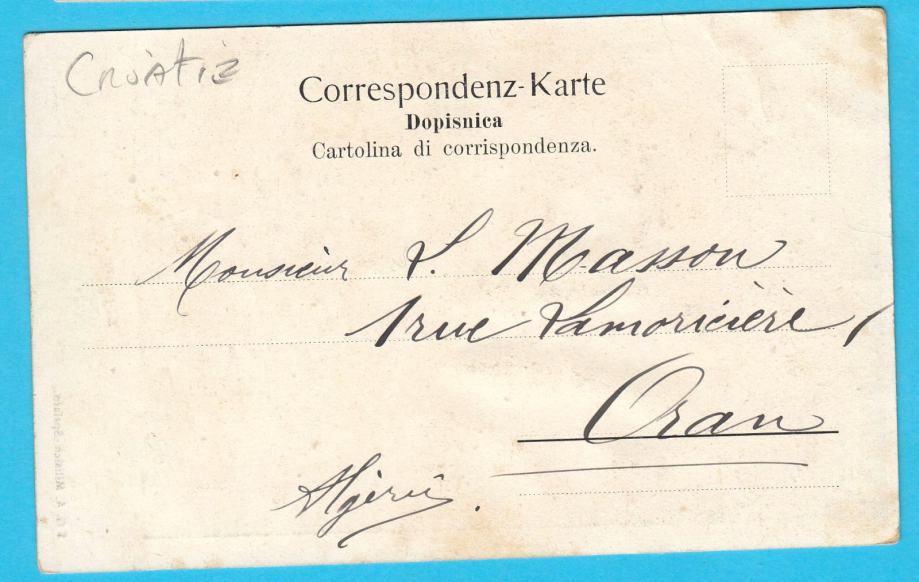 Croatie
Correspondenz-Karte
Dopisnica
Cartolina di corrispondenza.
Monsieur L. Masson
1 rue Lamoricière
Oran
Algérie.